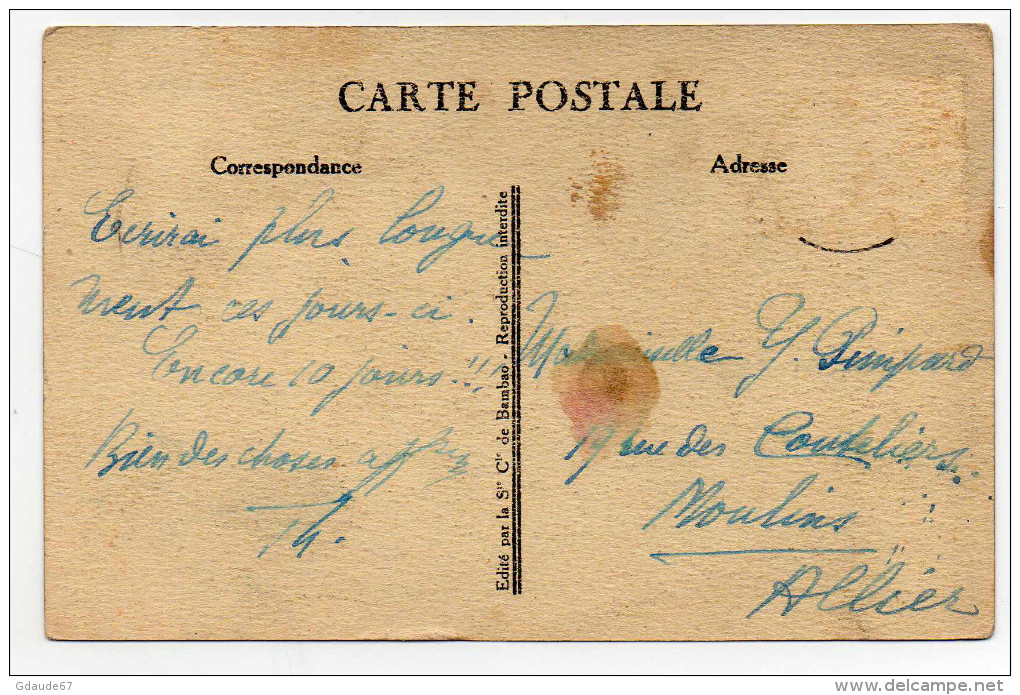 CARTE POSTALE
Correspondance
Adresse
Ecrirai plus longue
ment ces jours-ci.
Encore 10 jours!!!
Bien des choses affses
Th.
Edité par la Sté Cie de Bambao - Reproduction interdite
Mademoiselle Y. Pimpard
19 rue des Couteliers
Moulins
Allier
Gdaude67
delcampe.net